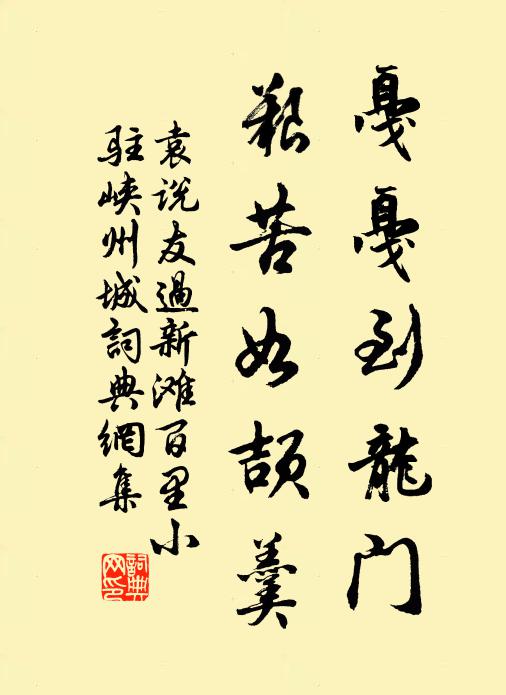 戛戛到龍门
艱苦如頡羹
袁说友過新滩百里小
駐峡州城詞典網集
詞典
网印